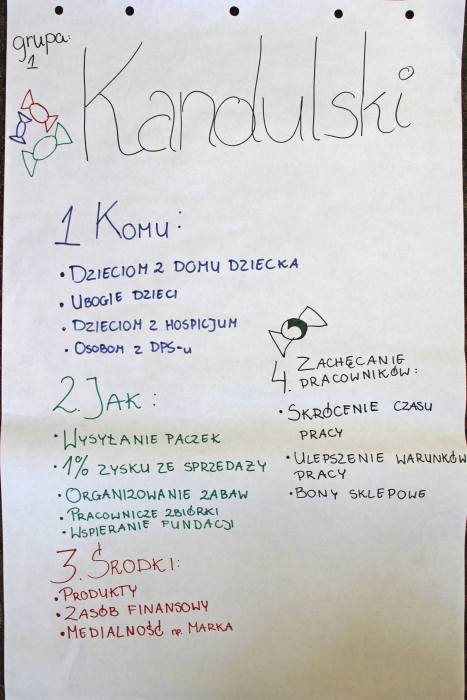 grupa:
1
Kandulski
1 Komu:
• DZIECIOM Z DOMU DZIECKA
• UBOGIE DZIECI
• DZIECIOM Z HOSPICJUM
• OSOBOM Z DPS-u
2. JAK:
• WYSYŁANIE PACZEK
• 1% ZYSKU ZE SPRZEDAŻY
• ORGANIZOWANIE ZABAW
• PRACOWNICZE ZBIÓRKI
• WSPIERANIE FUNDACJI
3. ŚRODKI:
• PRODUKTY
• ZASÓB FINANSOWY
• MEDIALNOŚĆ np. MARKA
4. ZACHĘCANIE
PRACOWNIKÓW:
• SKRÓCENIE CZASU
PRACY
• ULEPSZENIE WARUNKÓW
PRACY
• BONY SKLEPOWE